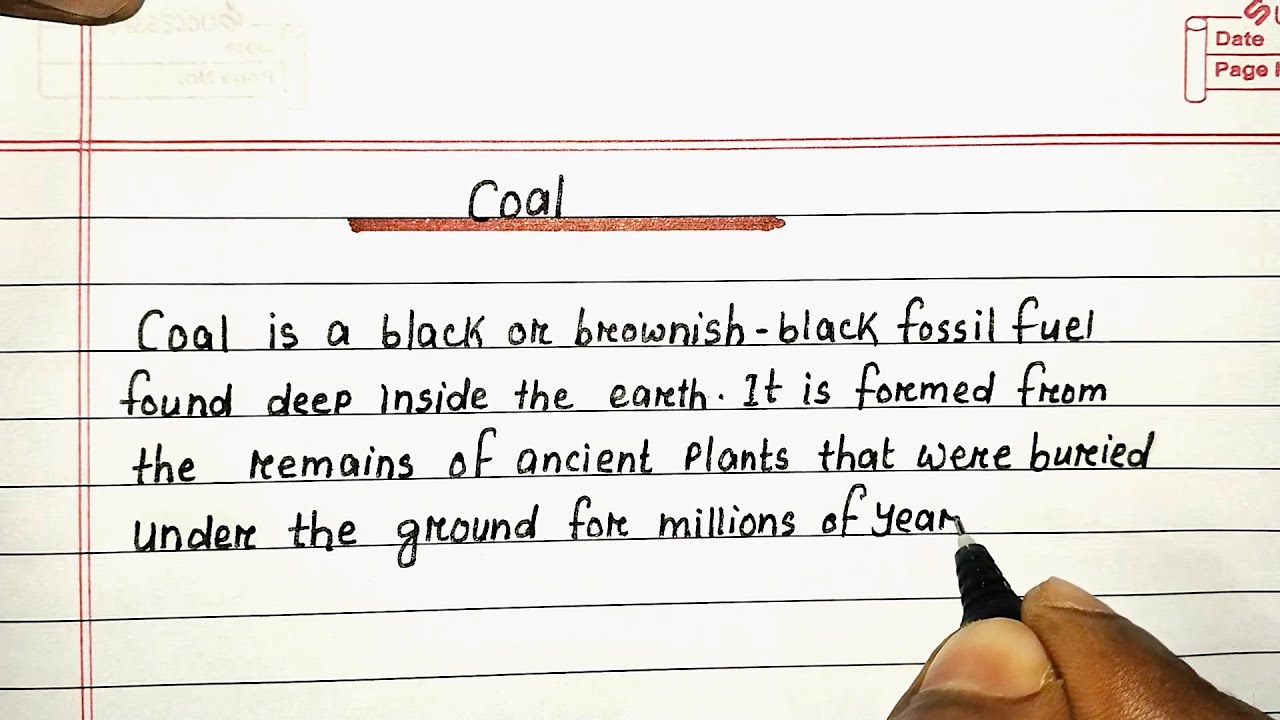 Date
Page
Coal
Coal is a black or brownish-black fossil fuel
found deep inside the earth. It is formed from
the remains of ancient plants that were buried
under the ground for millions of year